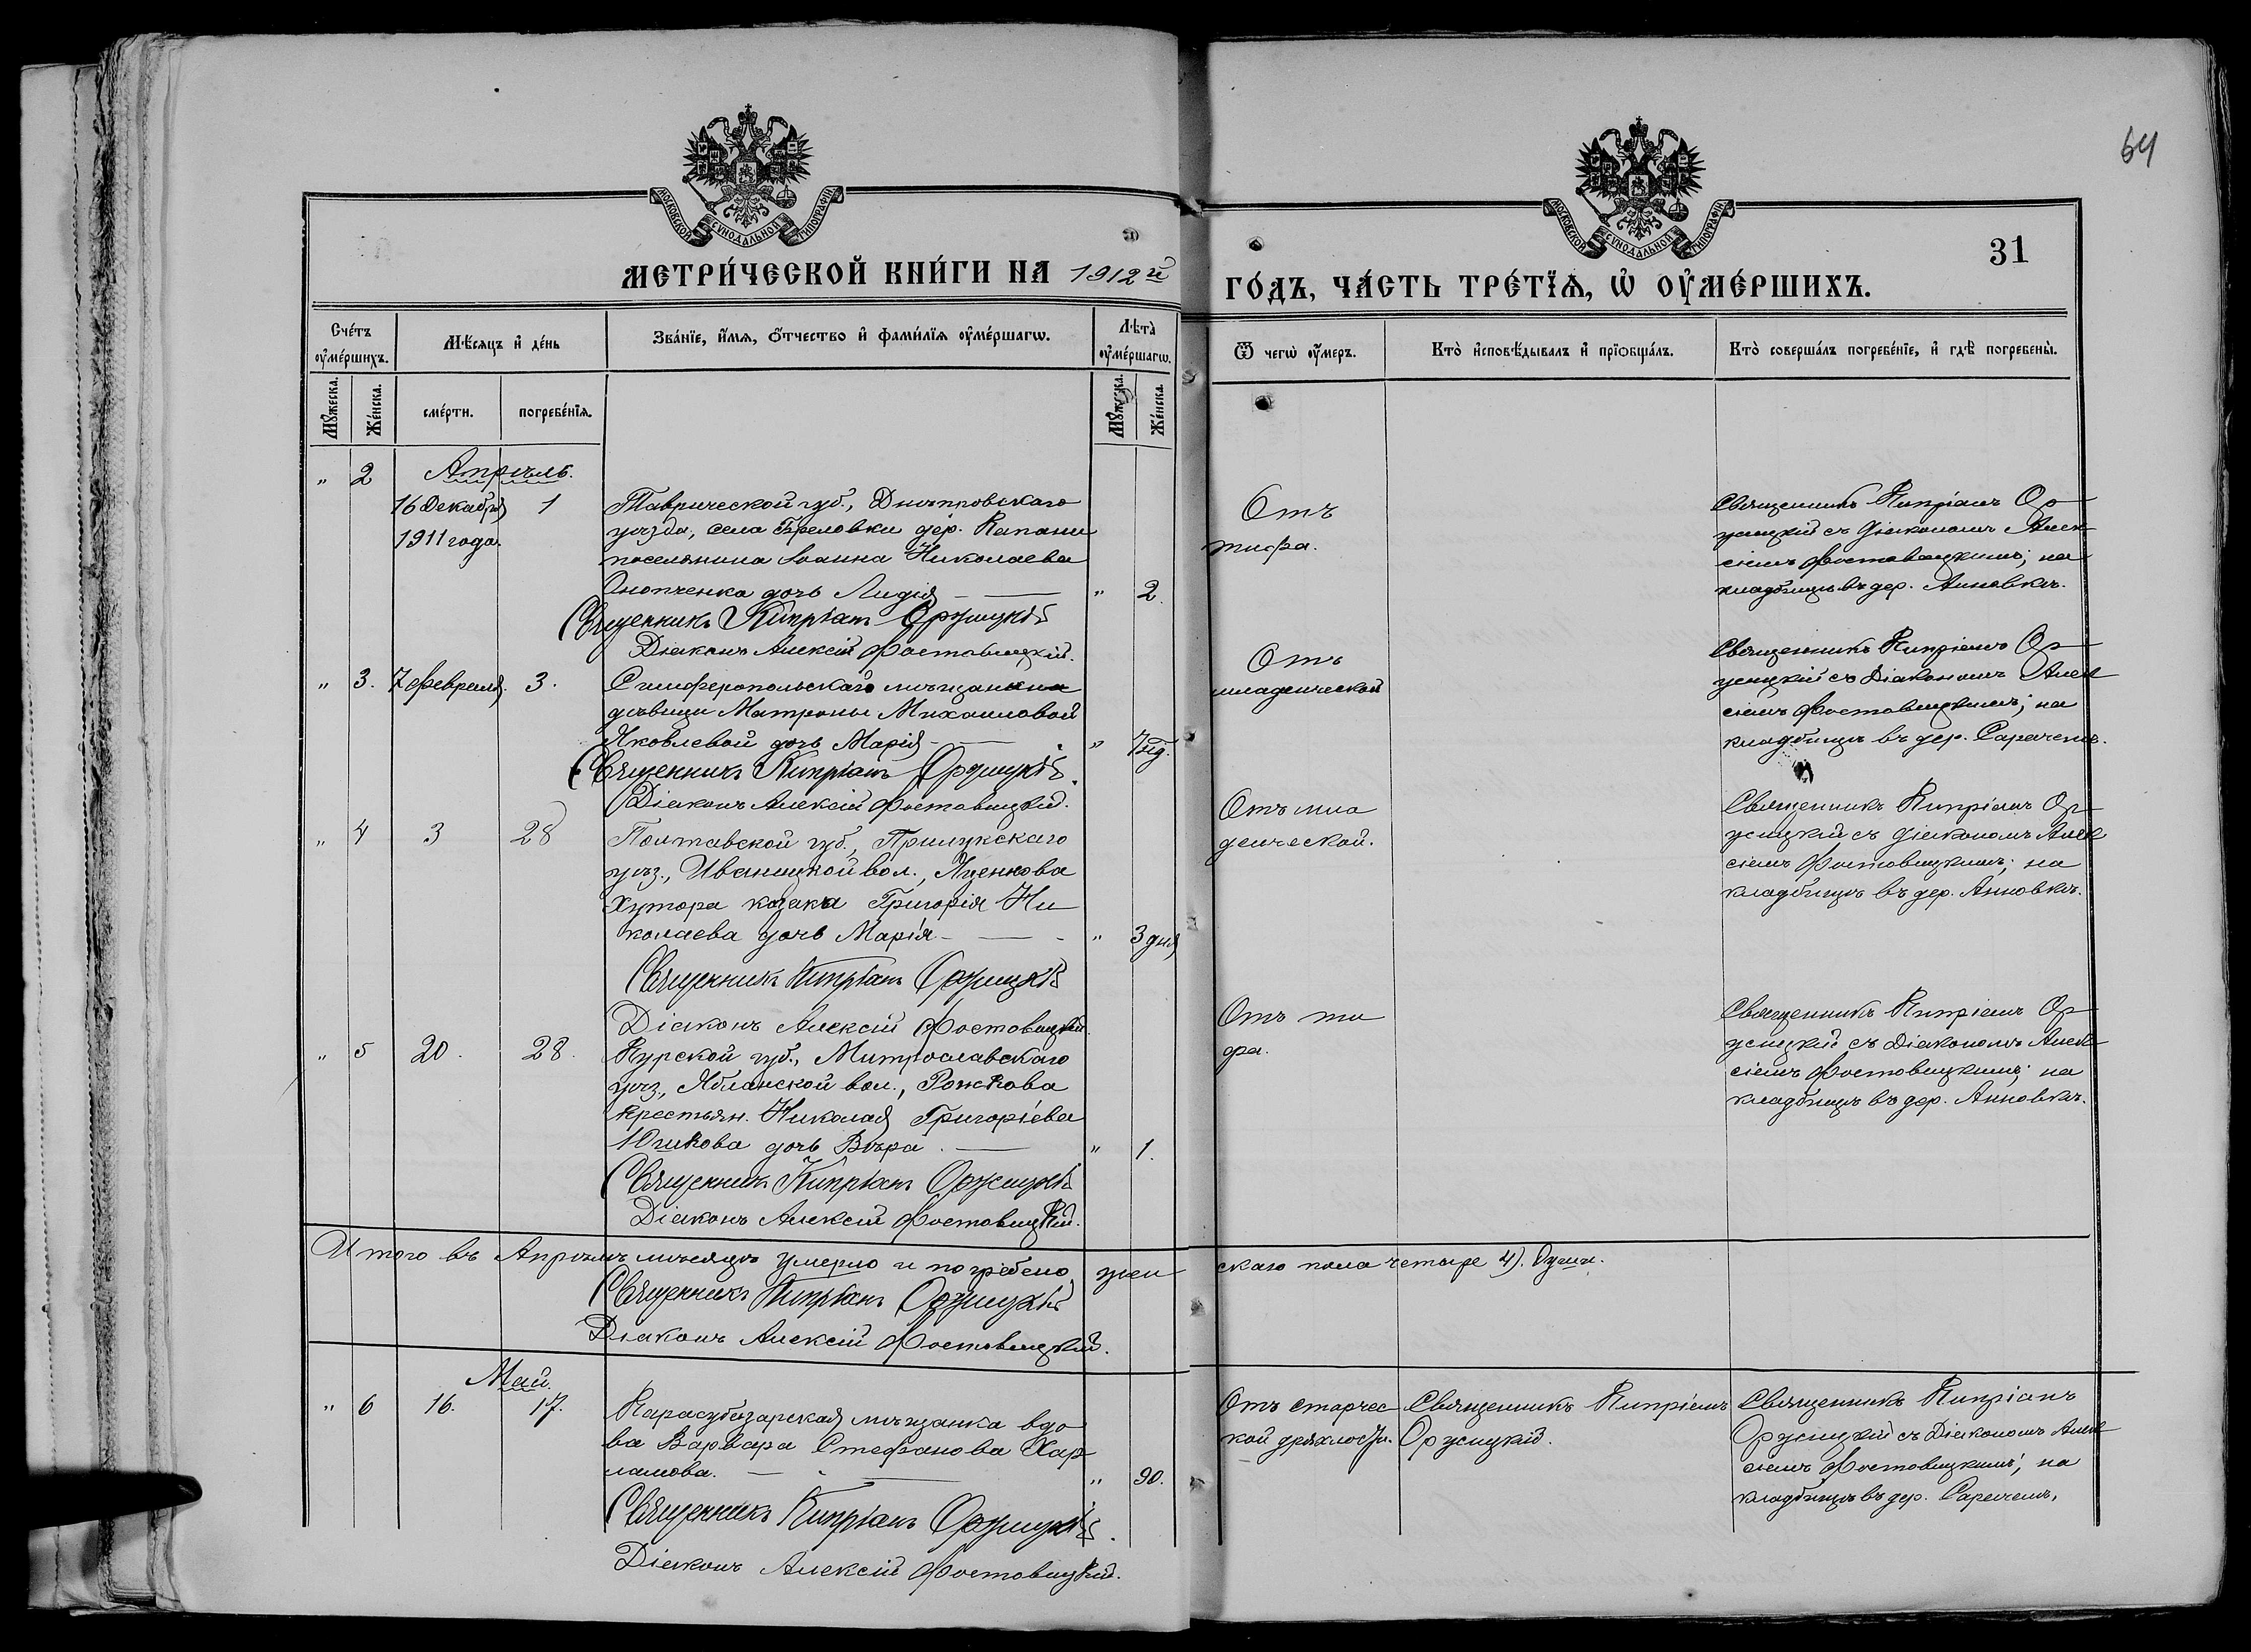 64
МОСКОВСКОЙ СѴНОДАЛЬНОЙ ТИПОГРАФІИ
МОСКОВСКОЙ СѴНОДАЛЬНОЙ ТИПОГРАФІИ
31
МЕТРИ́ЧЕСКОЙ КНИ́ГИ НА 1912й
ГО́ДЪ, ЧА́СТЬ ТРЕ́ТЇѦ, Ѡ҆ ОУ҆МЕ́РШИХЪ.
Сче́тъ оу҆ме́ршихъ.
Мѣ́сяцъ и҆ де́нь
Зва́нїе, и҆́мѧ, ѻ҆́тчество и҆ фами́лїѧ оу҆ме́ршагѡ.
Лѣта̀ оу҆ме́ршагѡ.
Ѿ чегѡ̀ оу҆́меръ.
Кто̀ и҆сповѣ́дывалъ и҆ прїѡбща́лъ.
Кто̀ соверша́лъ погребе́нїе, и҆ гдѣ̀ погребены̀.
Мꙋ́жеска.
Же́нска.
сме́рти.
погребе́нїѧ.
Мꙋ́жеска.
Же́нска.
" 2 Апрѣль.
16 Декабря 1
1911 года.
Таврической губ., Днѣпровскаго
уѣзда, села дер. Капани
поселянина Іоанна Николаева
Онопченка дочь Лидія " 2.
Священникъ Кипріанъ Оржицкій
Діаконъ Алексій Фостовицкій.
Отъ
тифа.
Священникъ Кипріанъ Ор
жицкій съ діакономъ Алек
сіемъ Фостовицкимъ; на
кладбищѣ въ дер. Анновкѣ.
" 3. 7 февраля. 3.
Симферопольскаго мѣщанина
дѣвицы Матроны Михаиловой
Яковлевой дочь Марія " 7 нд.
Священникъ Кипріанъ Оржицкій.
Діаконъ Алексій Фостовицкій.
Отъ
младенческой
Священникъ Кипріанъ Ор
жицкій съ Діакономъ Алек
сіемъ Фостовицкимъ; на
кладбищѣ въ дер.
" 4 3 28
Полтавской губ., Прилукскаго
уѣз., Иваницкой вол., Яценкова
Хутора козака Григорія Ни
колаева дочь Марія " 3 дня
Священникъ Кипріанъ Оржицкій
Діаконъ Алексій Фостовицкій.
Отъ мла
денческой.
Священникъ Кипріанъ Ор
жицкій съ діакономъ Алек
сіемъ Фостовицкимъ; на
кладбищѣ въ дер. Анновкѣ.
" 5 20. 28.
Курской губ., Митрославскаго
уѣз., Ябланской вол., Рожкова
крестьян. Николая Григоріева
дочь Вѣра. " 1.
Священникъ Кипріанъ Оржицкій
Діаконъ Алексій Фостовицкій.
Отъ ти
фа.
Священникъ Кипріанъ Ор
жицкій съ Діакономъ Алек
сіемъ Фостовицкимъ; на
кладбищѣ въ дер. Анновкѣ.
Итого въ Апрѣлѣ мѣсяцѣ умерло и погребено жен
скаго пола четыре 4). Души.
Священникъ Кипріанъ Оржицкій
Діаконъ Алексій Фостовицкій.
Май.
" 6 16. 17.
Карасубазарская мѣщанка вдо
ва Варвара Стефанова Хар
ламова. " 90.
Священникъ Кипріанъ Оржицкій.
Діаконъ Алексій Фостовицкій.
Отъ старчес
кой дряхлости.
Священникъ Кипріанъ
Оржицкій.
Священникъ Кипріанъ
Оржицкій съ Діакономъ Алек
сіемъ Фостовицкимъ; на
кладбищѣ въ дер.